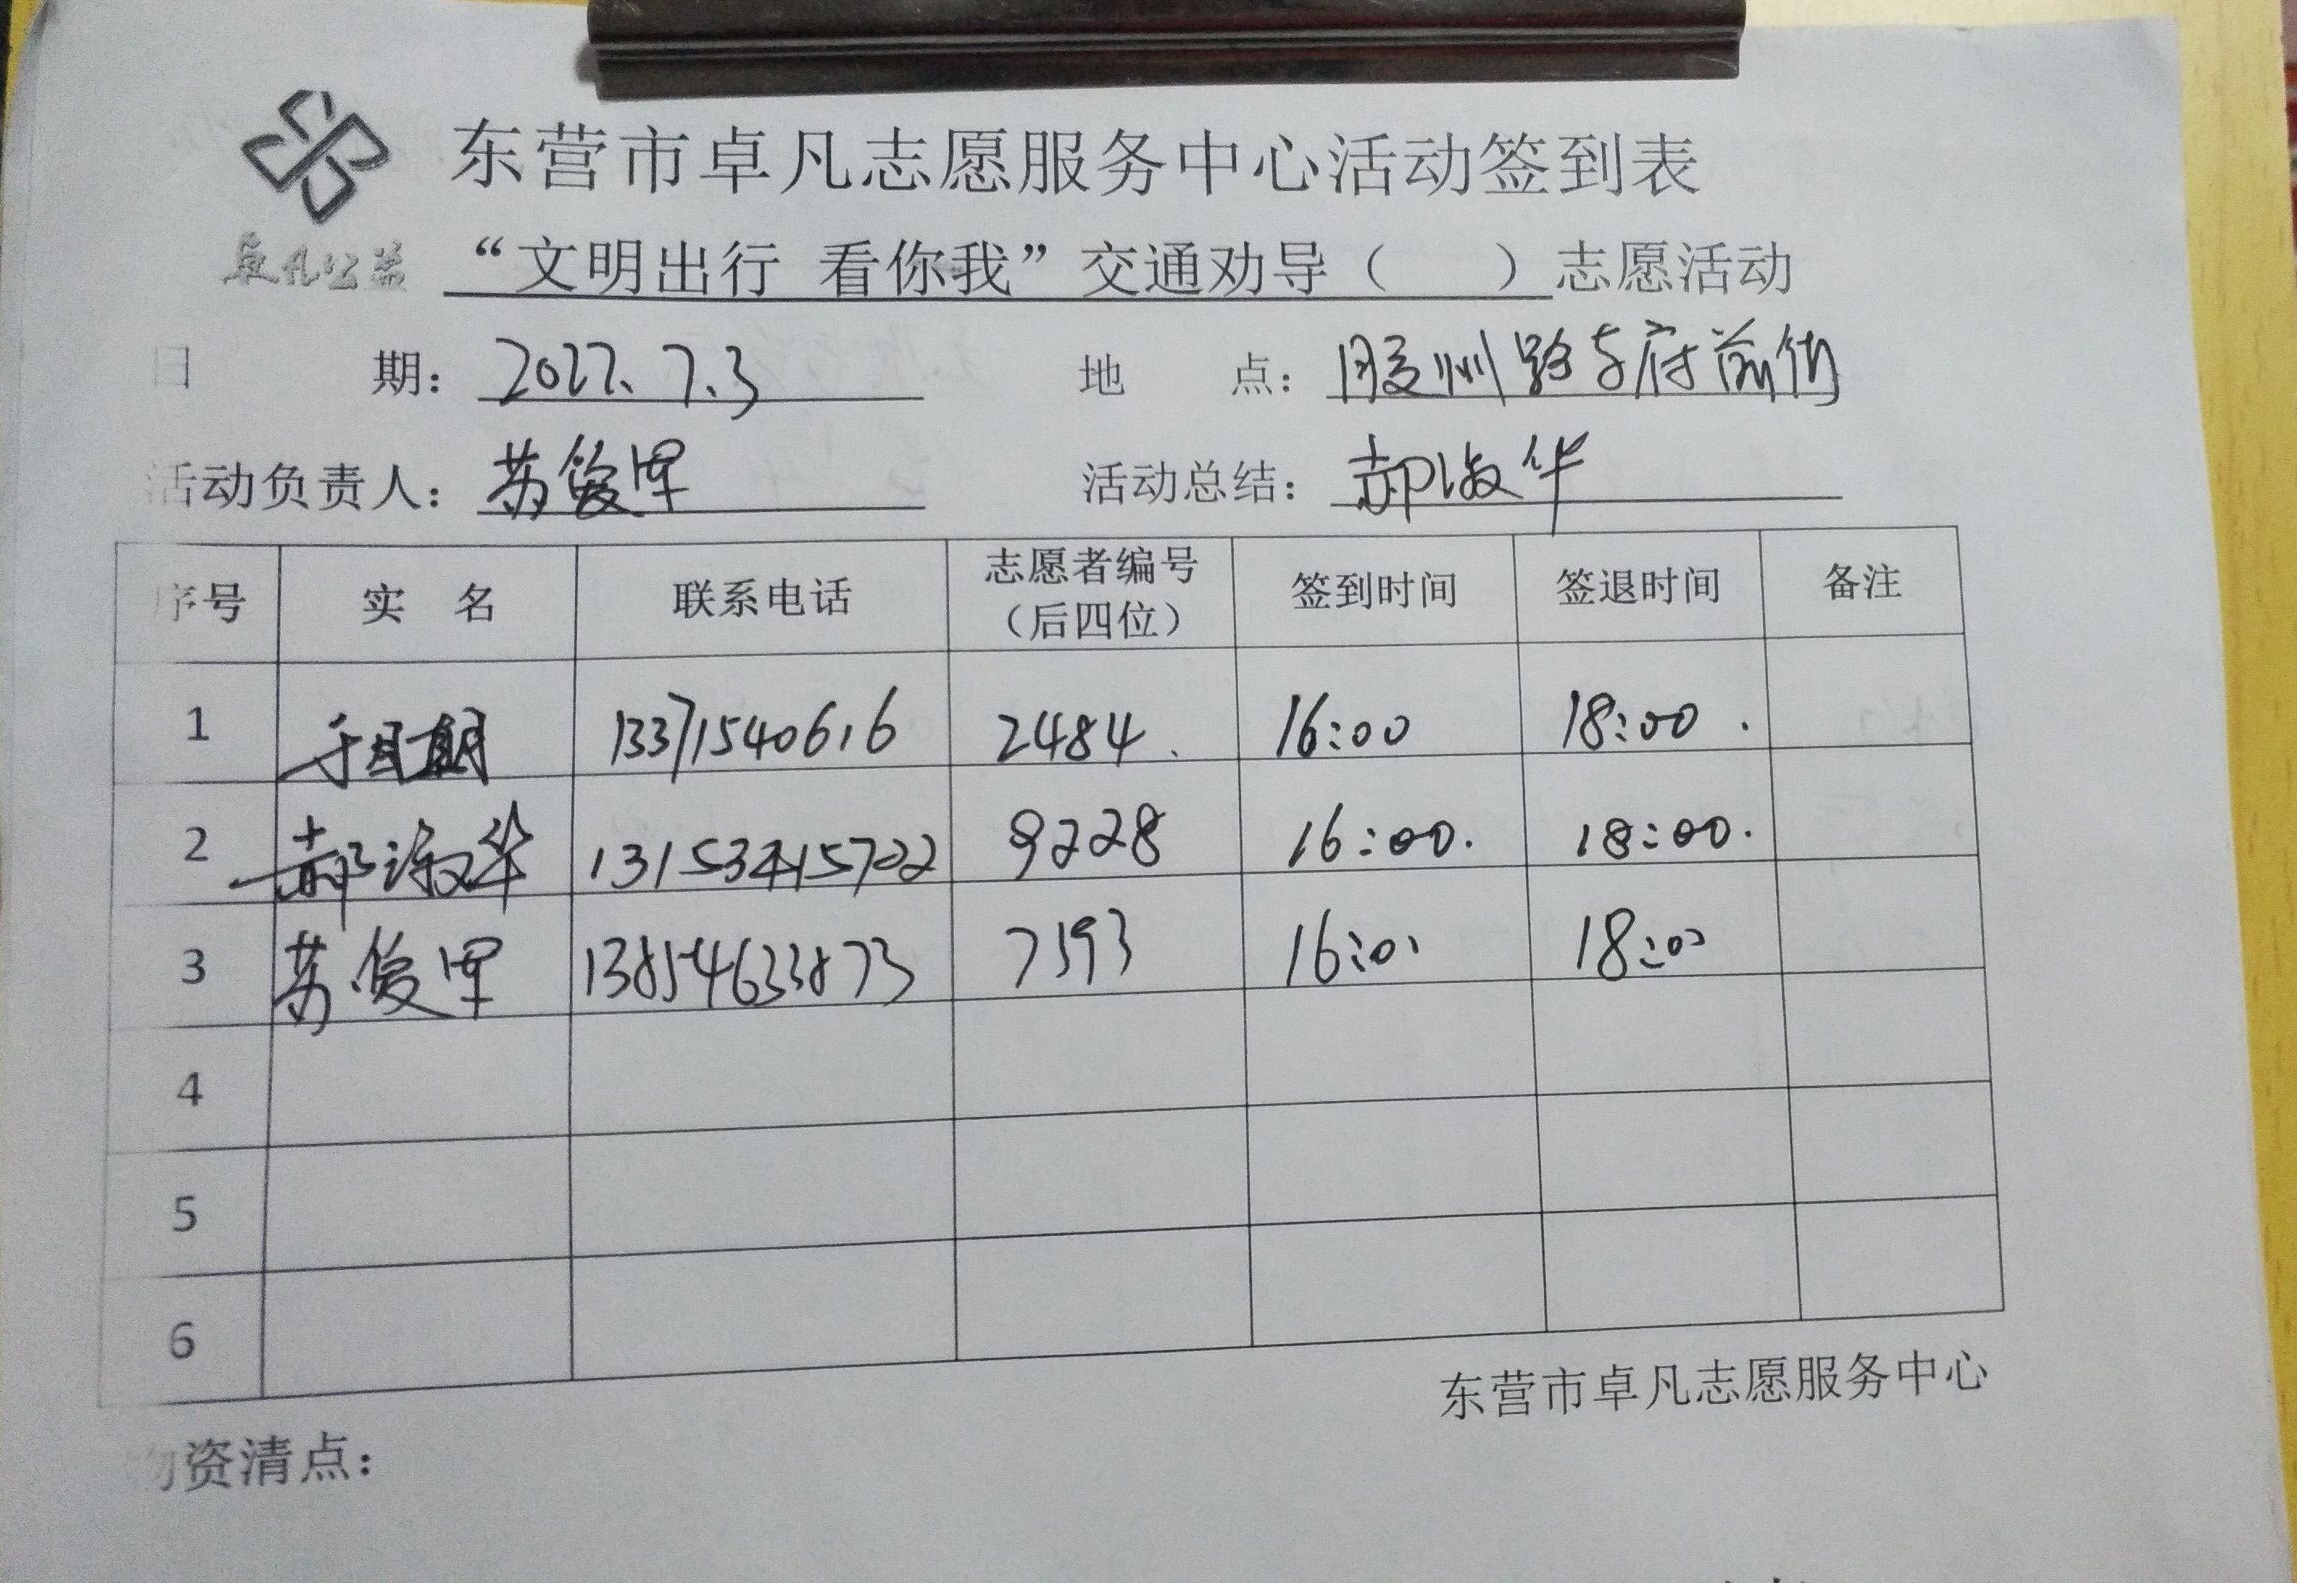 东营市卓凡志愿服务中心活动签到表
卓凡公益
“文明出行 看你我”交通劝导（ ）志愿活动
日 期： 2022.7.3 地 点： 胶州路与府前街
活动负责人： 苏俊军 活动总结： 郝淑华
序号 实 名 联系电话 志愿者编号（后四位） 签到时间 签退时间 备注
1 13371540616 2484 16:00 18:00
2 郝淑华 9228 16:00 18:00
3 苏俊军 13854633873 7593 16:00 18:00
4
5
6
东营市卓凡志愿服务中心
物资清点：